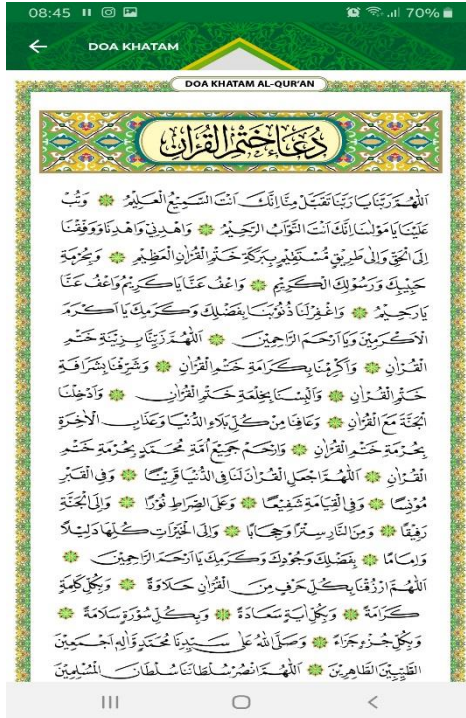 08:45
70%
DOA KHATAM
DOA KHATAM AL-QUR'AN
دُعَاءُ خَتْمِ الْقُرْآنِ
اَللّٰهُمَّ رَبَّنَا يَا رَبَّنَا تَقَبَّلْ مِنَّا اِنَّكَ اَنْتَ السَّمِيْعُ الْعَلِيْمُ وَتُبْ
عَلَيْنَا يَا مَوْلٰىنَا اِنَّكَ اَنْتَ التَّوَّابُ الرَّحِيْمُ وَاهْدِنَا وَاهْدِنَا وَوَفِّقْنَا
اِلَى الْحَقِّ وَاِلٰى طَرِيْقٍ مُسْتَقِيْمٍ بِبَرَكَةِ خَتْمِ الْقُرْاٰنِ الْعَظِيْمِ وَبِحُرْمَةِ
حَبِيْبِكَ وَرَسُوْلِكَ الْكَرِيْمِ وَاعْفُ عَنَّا يَا كَرِيْمُ وَاعْفُ عَنَّا
يَا رَحِيْمُ وَاغْفِرْ لَنَا ذُنُوْبَنَا بِفَضْلِكَ وَكَرَمِكَ يَا اَكْرَمَ
الْاَكْرَمِيْنَ وَيَا اَرْحَمَ الرَّاحِمِيْنَ اَللّٰهُمَّ زَيِّنَّا بِزِيْنَةِ خَتْمِ
الْقُرْاٰنِ وَاَكْرِمْنَا بِكَرَامَةِ خَتْمِ الْقُرْاٰنِ وَشَرِّفْنَا بِشَرَافَةِ
خَتْمِ الْقُرْاٰنِ وَاَلْبِسْنَا بِخِلْعَةِ خَتْمِ الْقُرْاٰنِ وَاَدْخِلْنَا
الْجَنَّةَ مَعَ الْقُرْاٰنِ وَعَافِنَا مِنْ كُلِّ بَلَاءِ الدُّنْيَا وَعَذَابِ الْاٰخِرَةِ
بِحُرْمَةِ خَتْمِ الْقُرْاٰنِ وَارْحَمْ جَمِيْعَ اُمَّةِ مُحَمَّدٍ بِحُرْمَةِ خَتْمِ
الْقُرْاٰنِ اَللّٰهُمَّ اجْعَلِ الْقُرْاٰنَ لَنَا فِى الدُّنْيَا قَرِيْنًا وَفِى الْقَبْرِ
مُوْنِسًا وَفِى الْقِيَامَةِ شَفِيْعًا وَعَلَى الصِّرَاطِ نُوْرًا وَاِلَى الْجَنَّةِ
رَفِيْقًا وَمِنَ النَّارِ سِتْرًا وَحِجَابًا وَاِلَى الْخَيْرَاتِ كُلِّهَا دَلِيْلًا
وَاِمَامًا بِفَضْلِكَ وَجُوْدِكَ وَكَرَمِكَ يَا اَرْحَمَ الرَّاحِمِيْنَ
اَللّٰهُمَّ ارْزُقْنَا بِكُلِّ حَرْفٍ مِنَ الْقُرْاٰنِ حَلَاوَةً وَبِكُلِّ كَلِمَةٍ
كَرَامَةً وَبِكُلِّ اٰيَةٍ سَعَادَةً وَبِكُلِّ سُوْرَةٍ سَلَامَةً
وَبِكُلِّ جُزْءٍ جَزَاءً وَصَلَّى اللّٰهُ عَلٰى سَيِّدِنَا مُحَمَّدٍ وَاٰلِهِ اَجْمَعِيْنَ
الطَّيِّبِيْنَ الطَّاهِرِيْنَ اَللّٰهُمَّ انْصُرْ سُلْطَانَنَا سُلْطَانَ الْمُسْلِمِيْنَ